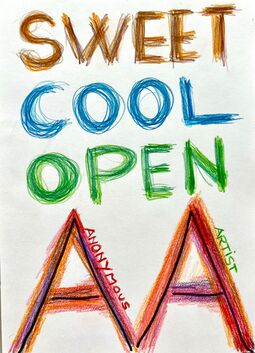 SWEET
COOL
OPEN
AA
ANONYMOUS
ARTIST